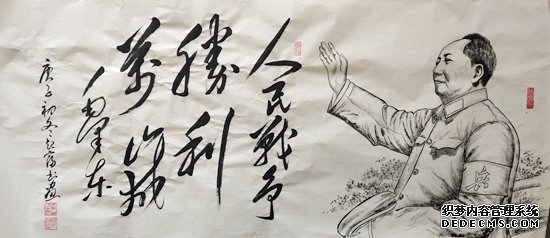 人民戰争
勝利
萬歲
毛澤东
庚子初冬
书画
织梦内容管理系统
DEDECMS.COM